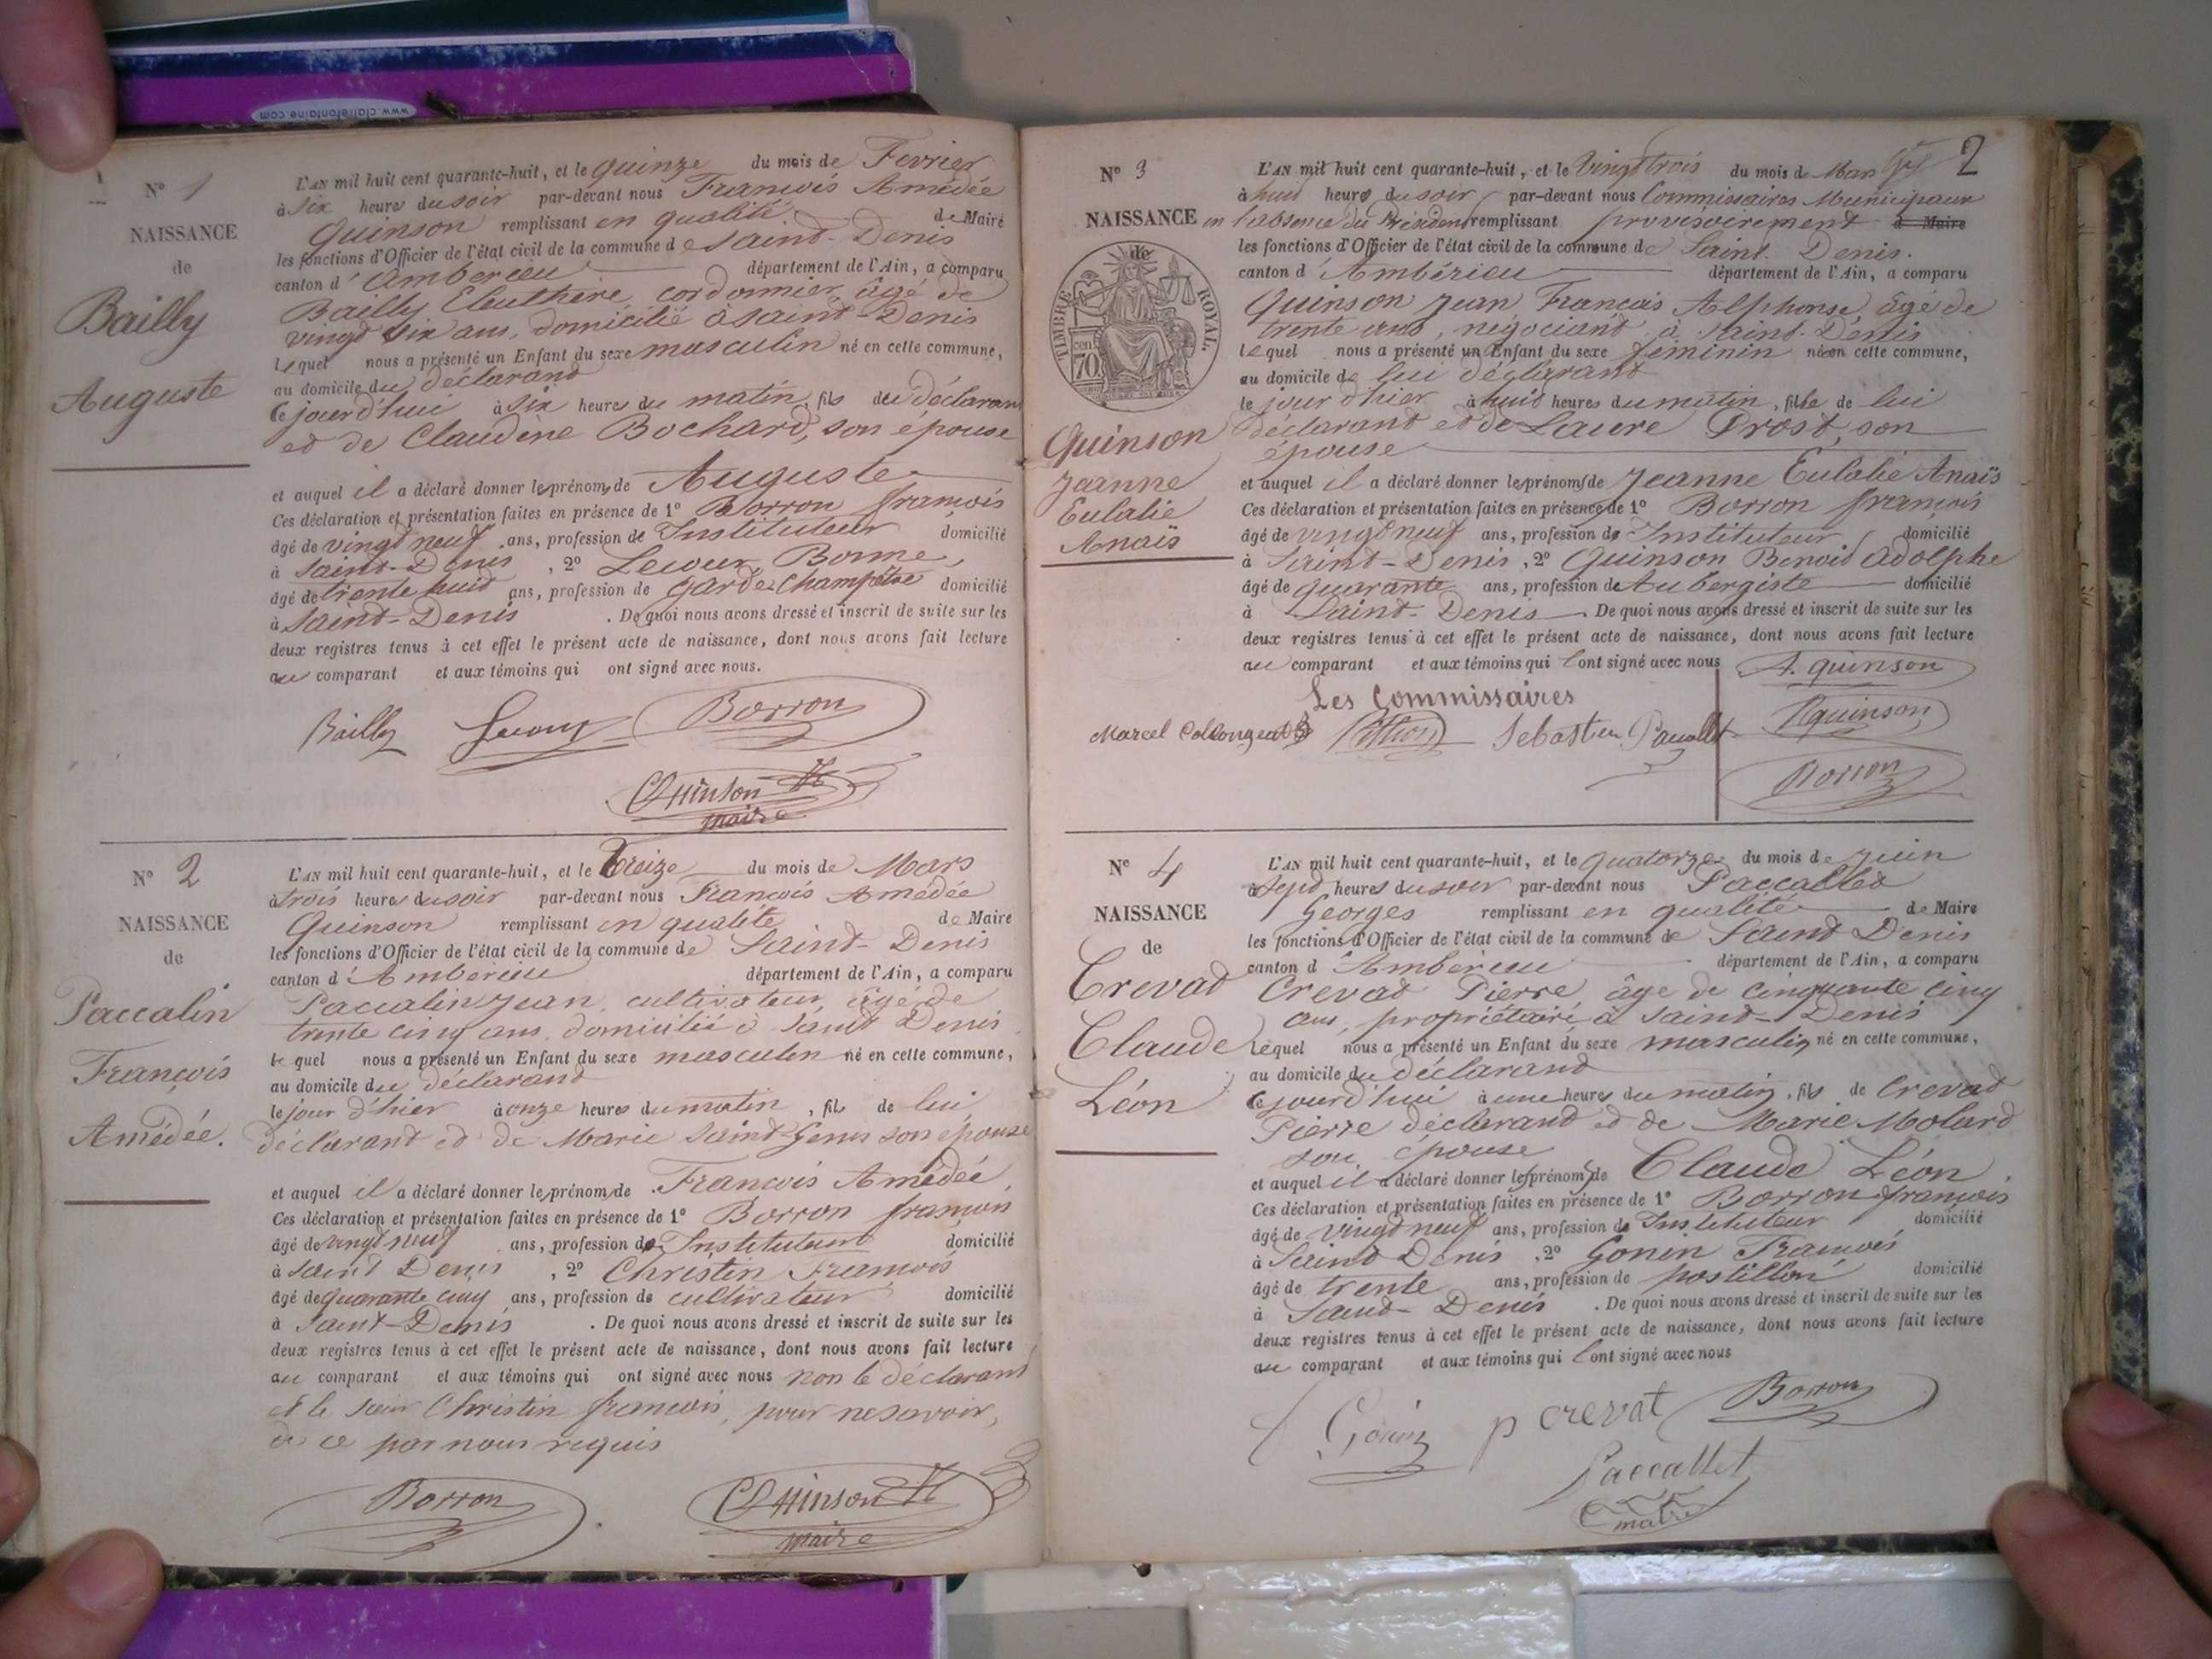 www.clairefontaine.com
N° 1
NAISSANCE
de
Bailly
Auguste
L'AN mil huit cent quarante-huit, et le quinze du mois de Fevrier
à six heures du soir par-devant nous François Amédée
Quinson remplissant en qualité de Maire
les fonctions d'Officier de l'état civil de la commune de Saint-Denis
canton d'Amberieu département de l'Ain, a comparu
Bailly Eleuthère, cordonnier, âgé de
vingt six ans, domicilié à Saint-Denis
lequel nous a présenté un Enfant du sexe masculin né en cette commune,
au domicile du déclarant
cejourd'hui à six heures du matin, fils du déclarant
et de Claudine Bochard, son épouse
et auquel il a déclaré donner le prénom de Auguste
Ces déclaration et présentation faites en présence de 1° Borron françois
âgé de vingt neuf ans, profession de Instituteur domicilié
à Saint-Denis, 2° Lecour
âgé de trente huit ans, profession de garde Champêtre domicilié
à Saint-Denis. De quoi nous avons dressé et inscrit de suite sur les
deux registres tenus à cet effet le présent acte de naissance, dont nous avons fait lecture
au comparant et aux témoins qui ont signé avec nous.
Bailly Lecour Borron
Quinson
maire
N° 2
NAISSANCE
de
Paccalin
François
Amédée.
L'AN mil huit cent quarante-huit, et le treize du mois de Mars
à trois heures du soir par-devant nous François Amédée
Quinson remplissant en qualité de Maire
les fonctions d'Officier de l'état civil de la commune de Saint-Denis
canton d'Ambérieu département de l'Ain, a comparu
Paccalin Jean, cultivateur, âgé de
trente cinq ans, domicilié à Saint Denis
lequel nous a présenté un Enfant du sexe masculin né en cette commune,
au domicile du déclarant
le jour d'hier à onze heures du matin, fils de lui
déclarant et de Marie Saint-Genis son épouse
et auquel il a déclaré donner le prénom de François Amédée
Ces déclaration et présentation faites en présence de 1° Borron françois
âgé de vingt neuf ans, profession de Instituteur domicilié
à Saint Denis, 2° Christin François
âgé de quarante cinq ans, profession de cultivateur domicilié
à Saint-Denis. De quoi nous avons dressé et inscrit de suite sur les
deux registres tenus à cet effet le présent acte de naissance, dont nous avons fait lecture
au comparant et aux témoins qui ont signé avec nous non le déclarant
et le sieur Christin françois, pour ne savoir,
de ce par nous requis
Borron Quinson
maire
2
N° 3
NAISSANCE
de
TIMBRE ROYAL.
70 cent
Quinson
Jeanne
Eulalie
Anaïs
L'AN mil huit cent quarante-huit, et le vingt trois du mois de Mars
à huit heures du soir par-devant nous Commissaires Municipaux
en l'absence du Président remplissant provisoirement d Maire
les fonctions d'Officier de l'état civil de la commune de Saint-Denis.
canton d'Ambérieu département de l'Ain, a comparu
Quinson Jean François Alphonse, âgé de
trente ans, négociant à Saint-Denis
lequel nous a présenté un Enfant du sexe féminin né en cette commune,
au domicile de lui déclarant
le jour d'hier à huit heures du matin, fille de lui
déclarant et de Laure Prost, son
épouse
et auquel il a déclaré donner les prénoms de Jeanne Eulalie Anaïs
Ces déclaration et présentation faites en présence de 1° Borron françois
âgé de vingt neuf ans, profession de Instituteur domicilié
à Saint-Denis, 2° Quinson Benoit Adolphe
âgé de quarante ans, profession de Aubergiste domicilié
à Saint-Denis. De quoi nous avons dressé et inscrit de suite sur les
deux registres tenus à cet effet le présent acte de naissance, dont nous avons fait lecture
au comparant et aux témoins qui l'ont signé avec nous
Les Commissaires
Marcel Sebastien Pacallet
A. quinson
quinson
Borron
N° 4
NAISSANCE
de
Crevat
Claude
Léon
L'AN mil huit cent quarante-huit, et le quatorze du mois de Juin
à sept heures du soir par-devant nous Paccallet
Georges remplissant en qualité de Maire
les fonctions d'Officier de l'état civil de la commune de Saint Denis
canton d'Ambérieu département de l'Ain, a comparu
Crevat Pierre, âgé de cinquante cinq
ans, propriétaire à Saint-Denis
lequel nous a présenté un Enfant du sexe masculin né en cette commune,
au domicile du déclarant
cejourd'hui à une heure du matin, fils de Crevat
Pierre déclarant et de Marie Molard
son épouse
et auquel il a déclaré donner les prénoms de Claude Léon
Ces déclaration et présentation faites en présence de 1° Borron françois
âgé de vingt neuf ans, profession de Instituteur domicilié
à Saint Denis, 2° Gonin François
âgé de trente ans, profession de postillon domicilié
à Saint-Denis. De quoi nous avons dressé et inscrit de suite sur les
deux registres tenus à cet effet le présent acte de naissance, dont nous avons fait lecture
au comparant et aux témoins qui l'ont signé avec nous
Gonin p crevat Borron
Paccallet
maire